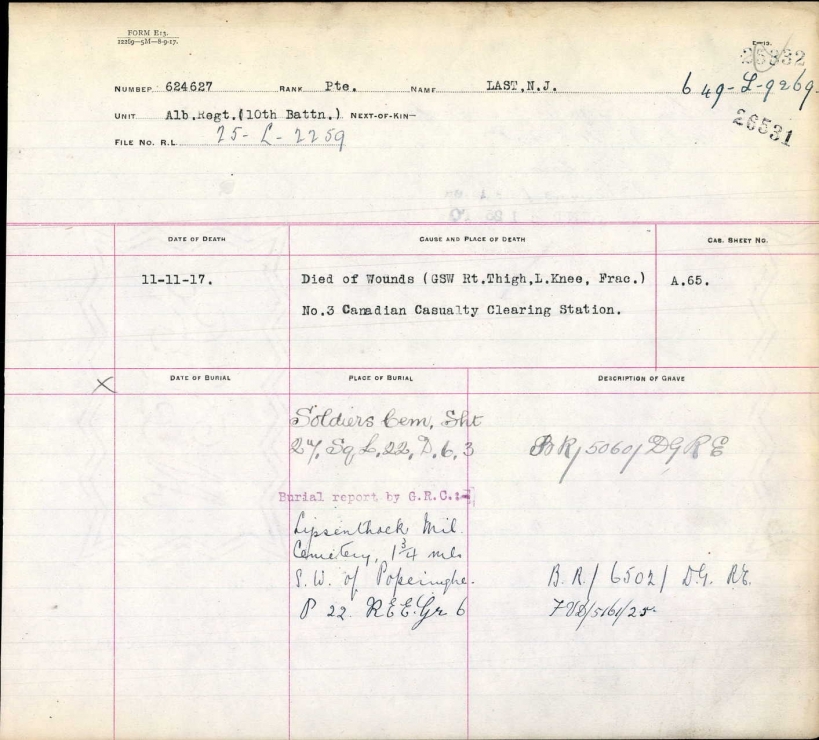 FORM E13.
12269—5M—8-9-17.
E—13.
NUMBER 624627 RANK Pte. NAME LAST, N.J. 649-L-9269.
UNIT Alb.Regt.(10th Battn.) NEXT-OF-KIN—
26531
FILE NO. R.L. 25-L-2259
DATE OF DEATH CAUSE AND PLACE OF DEATH CAS. SHEET NO.
11-11-17. Died of Wounds (GSW Rt.Thigh,L.Knee, Frac.) A.65.
No.3 Canadian Casualty Clearing Station.
X
DATE OF BURIAL PLACE OF BURIAL DESCRIPTION OF GRAVE
Soldiers Cem, Sht
27, Sq L,22,D,6,3 BR/5060/DGRE
Burial report by G.R.C:-
Lijssenthoek Mil.
Cemetery, 1 3/4 mls
S.W. of Poperinghe. B.R./6502/ D.G. RE.
P 22 R E E. Gr 6